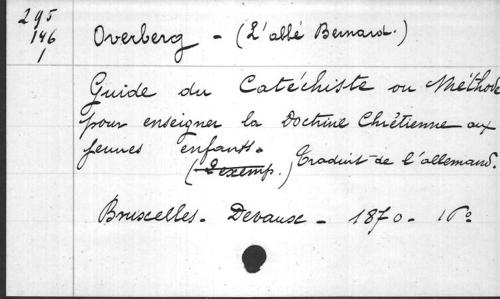 295
146
1
Overberg - (L'abbé Bernard.)
Guide du Catéchiste ou Méthode
pour enseigner la Doctrine Chrétienne aux
jeunes enfants.
(2 exemp.) Traduit de l'allemand.
Bruxelles - Devaux - 1870 - 16º